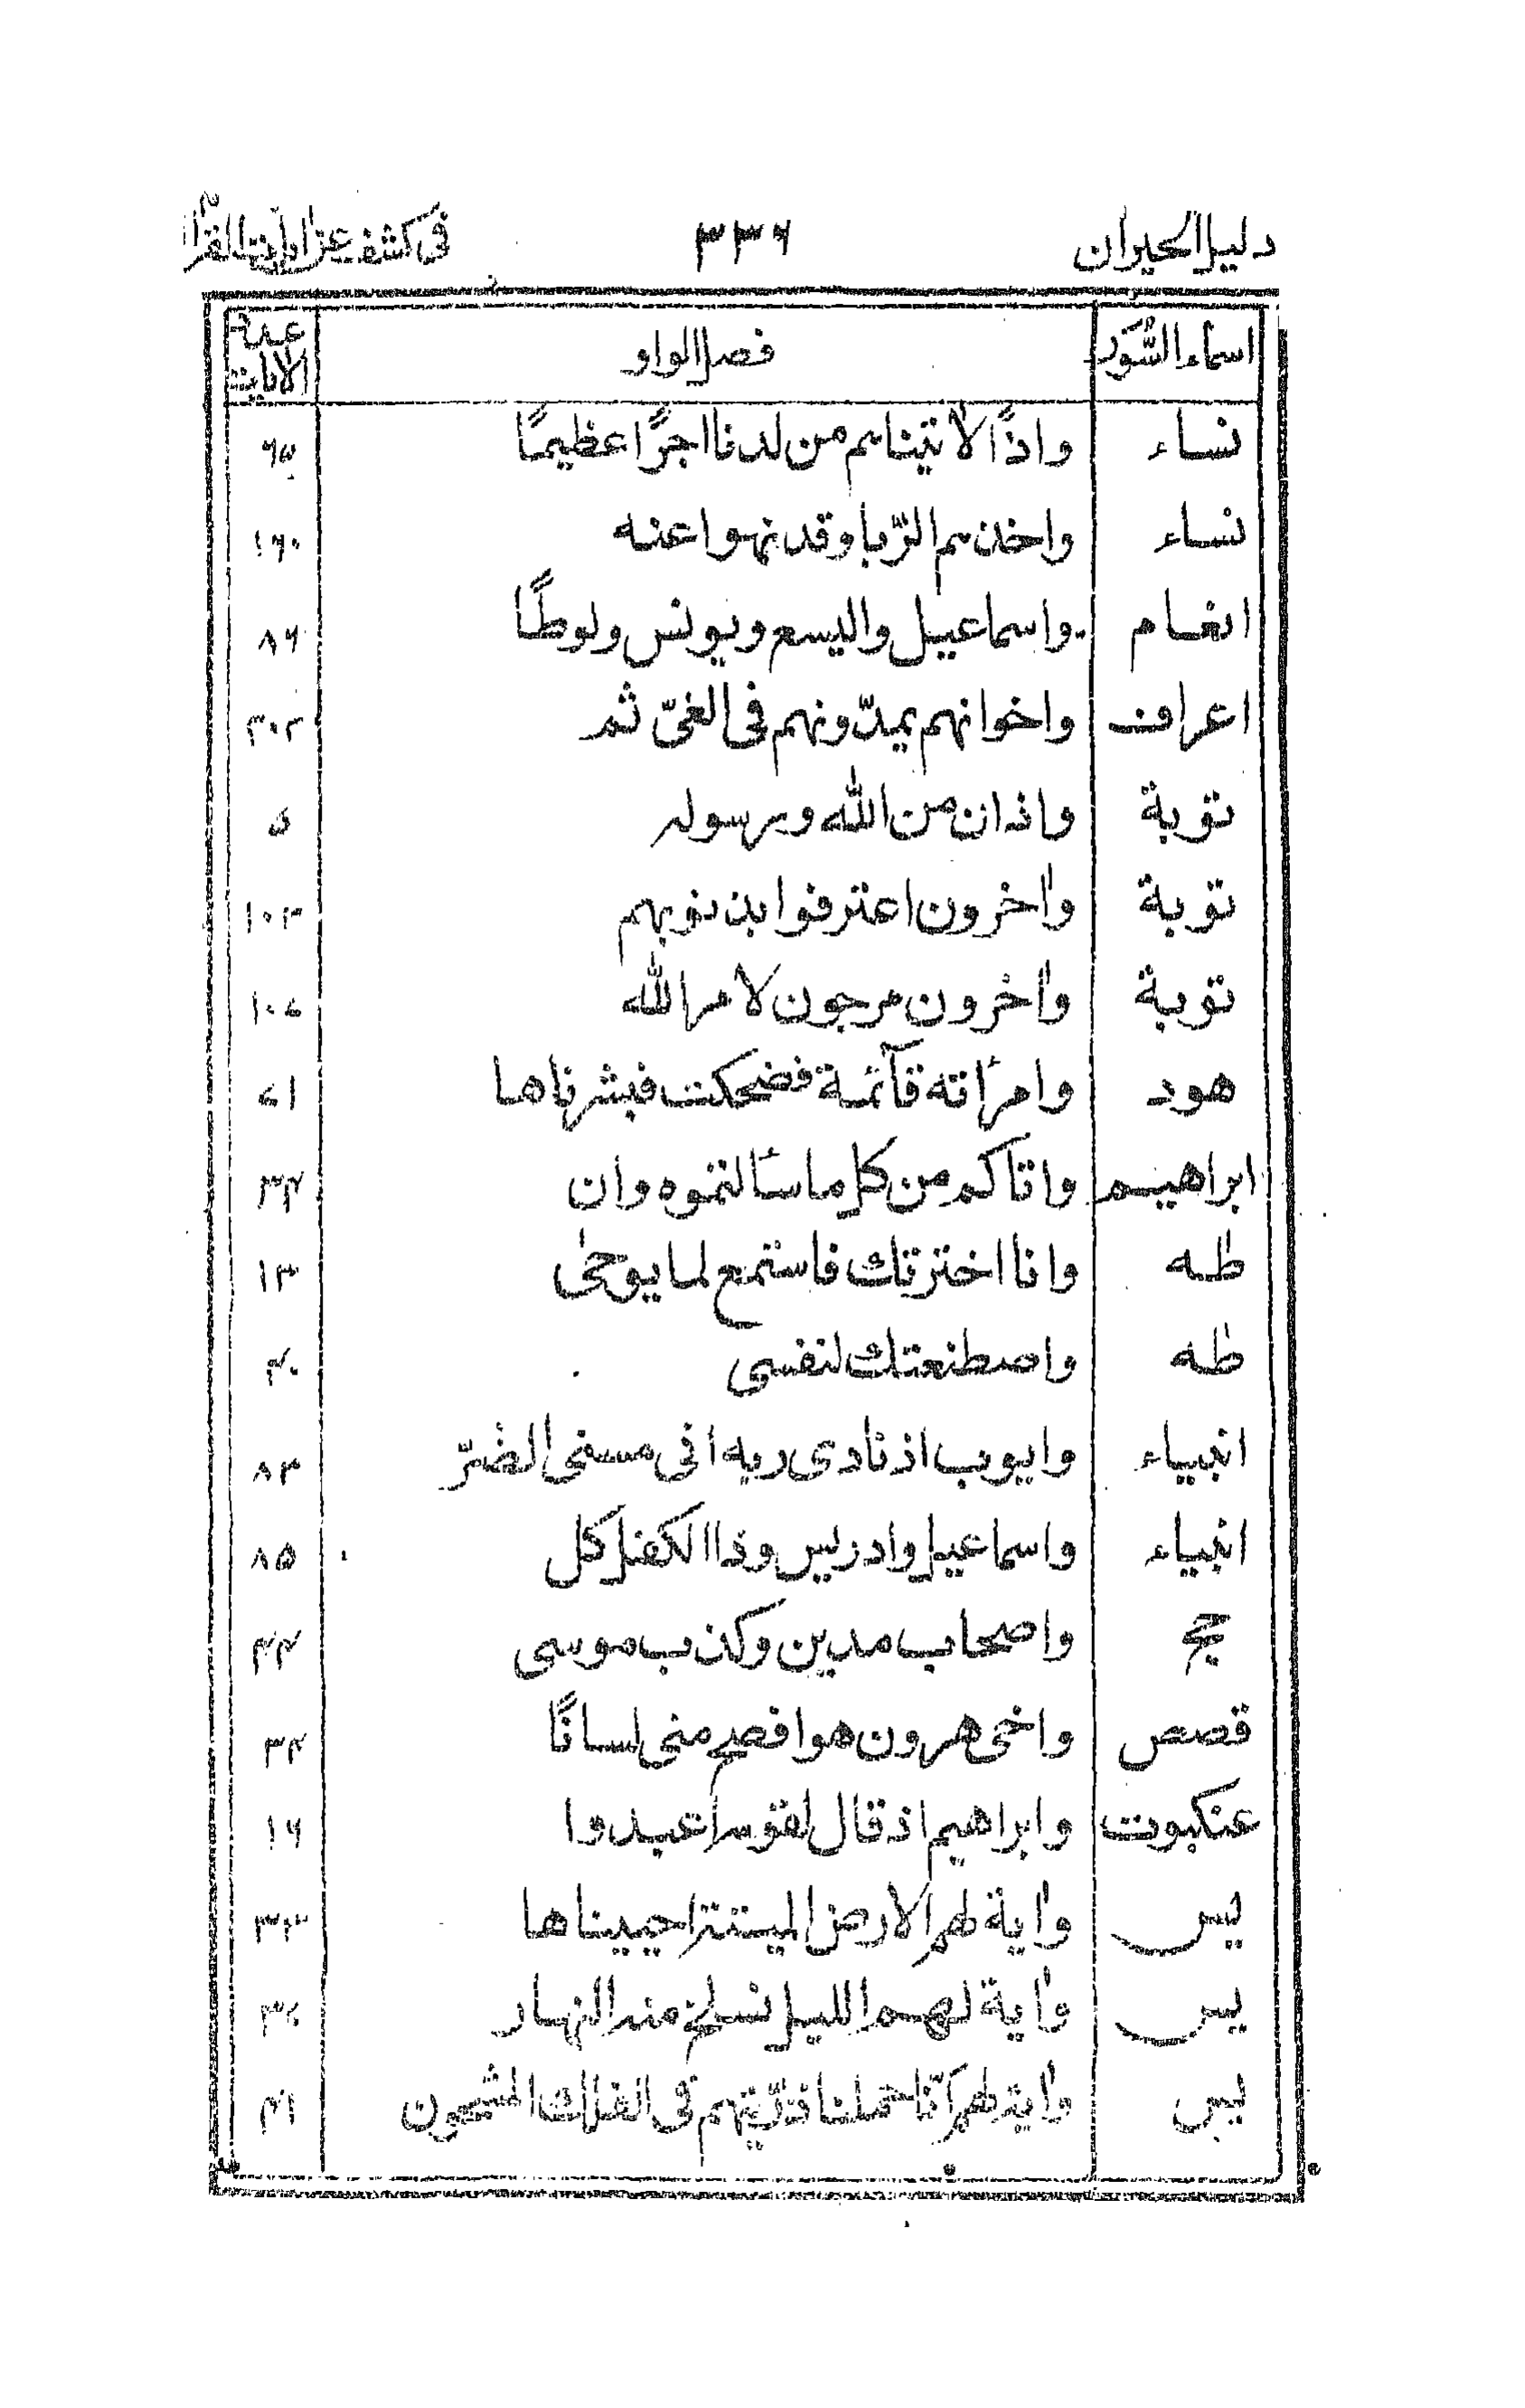 دليل الحيران ٣٣٦ فى كشف عن ايات القرآن
اسماء السُّوَر فصل الواو عدة الايات
نساء واذًا لاتيناهم من لدنا اجرًا عظيمًا ٦٥
نساء واخذهم الرّبا وقد نهوا عنه ١٦٠
انعام واسماعيل واليسع ويونس ولوطًا ٨٦
اعراف واخوانهم يمدّونهم فى الغىّ ثم ٢٠٣
توبة واذان من الله ورسوله
توبة واٰخرون اعترفوا بذنوبهم ١٠٣
توبة واٰخرون مرجون لامر الله ١٠٧
هود وامرأته قآئمة فضحكت فبشرناها ٧١
ابراهيم واتاكم من كل ما سألتموه وان ٣٤
طٰه وانا اخترتك فاستمع لما يوحىٰ ١٣
طٰه واصطنعتك لنفسى ٤٠
انبياء وايوب اذ نادى ربه انى مسنى الضّرّ ٨٣
انبياء واسماعيل وادريس وذا الكفل كل ٨٥
حج واصحاب مدين وكذب موسى ٤٤
قصص واخى هرون هو افصح منى لسانًا ٣٤
عنكبوت وابراهيم اذ قال لقومه اعبدوا ١٦
يٰس واٰية لهم الارض الميتة احييناها ٣٣
يٰس واٰية لهم الليل نسلخ منه النهار ٣٧
يٰس واٰية لهم انّا حملنا ذرّيتهم فى الفلك المشحون ٤١